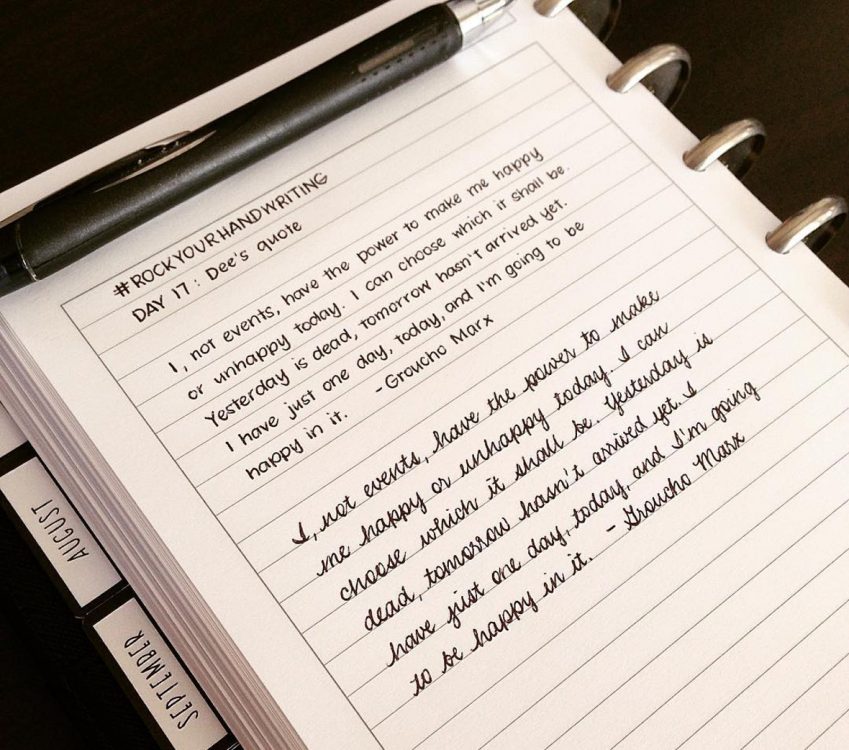 #ROCKYOURHANDWRITING
DAY 17 : Dee's quote
I, not events, have the power to make me happy
or unhappy today. I can choose which it shall be.
Yesterday is dead, tomorrow hasn't arrived yet.
I have just one day, today, and I'm going to be
happy in it. -Groucho Marx
I, not events, have the power to make
me happy or unhappy today. I can
choose which it shall be. Yesterday is
dead, tomorrow hasn't arrived yet. I
have just one day, today, and I'm going
to be happy in it. - Groucho Marx
AUGUST
SEPTEMBER